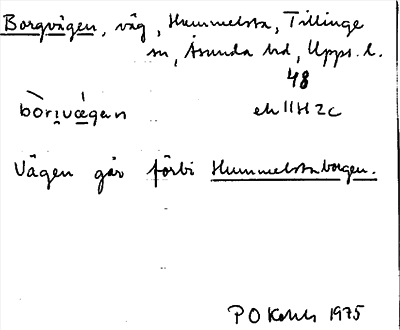 Borgvägen, väg, Hummelsta, Tillinge
sn, Åsunda hd, Upps. l.
48
bòrıvǽgan
ek 11H 2c
Vägen går förbi Hummelstaborgen.
P O 1975